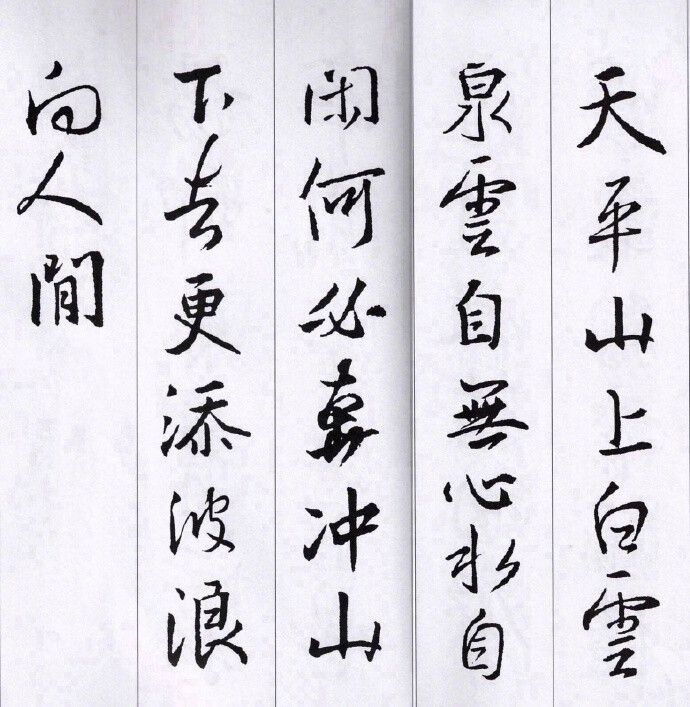 天平山上白雲
泉雲自無心水自
閑何必奔冲山
下去更添波浪
向人間